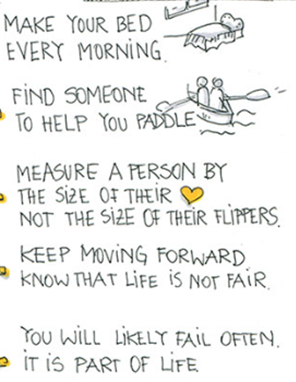 MAKE YOUR BED
EVERY MORNING.
FIND SOMEONE
TO HELP YOU PADDLE
MEASURE A PERSON BY
THE SIZE OF THEIR
NOT THE SIZE OF THEIR FLIPPERS.
KEEP MOVING FORWARD
KNOW THAT LIFE IS NOT FAIR.
YOU WILL LIKELY FAIL OFTEN.
IT IS PART OF LIFE